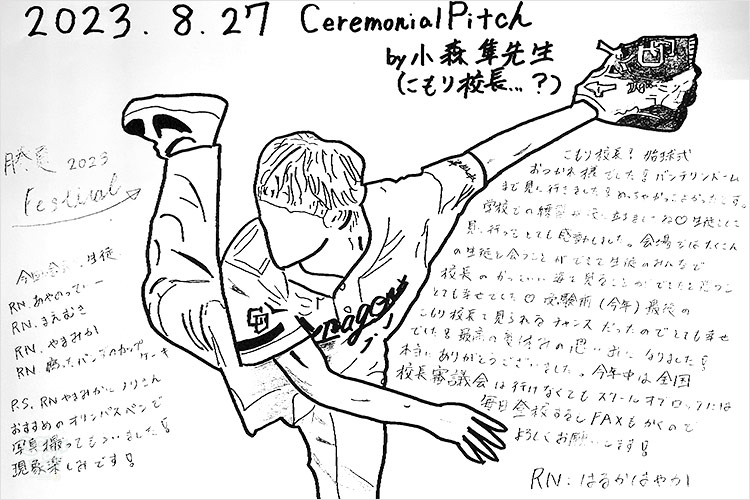 2023.8.27 CeremonialPitch
by小森隼先生
(こもり校長...?)
勝負 2023
Festival
今日会った生徒
RN.あやのってぃー
RN.まえむき
RN.やまみか
RN カップケーキ
P.S. RNやまみかに ノリさん
おすすめの オリンパスペンで
写真撮ってもらいました!
現象楽しみです!
CD
Dragons
こもり校長! 始球式
おつかれ様でした! バンテリンドーム
まで見に行きました! めっちゃかっこよかったです。
学校での練習 生徒として
見に行っててとても感動しました。会場ではたくさん
の生徒と会うことができて生徒のみんなで
校長のかっこいい姿を見ることができた
とても幸せでした♡ 受験前(今年)最後の
こもり校長を見られるチャンスだったのでとても幸せ
でした! 最高の夏休みの思い出になりました!
本当にありがとうございました。今年中は全国
校長審議会は行けなくてもスクールオブロックには
毎日登校するしFAXもかくので
よろしくお願いします!
RN:はるかはやか